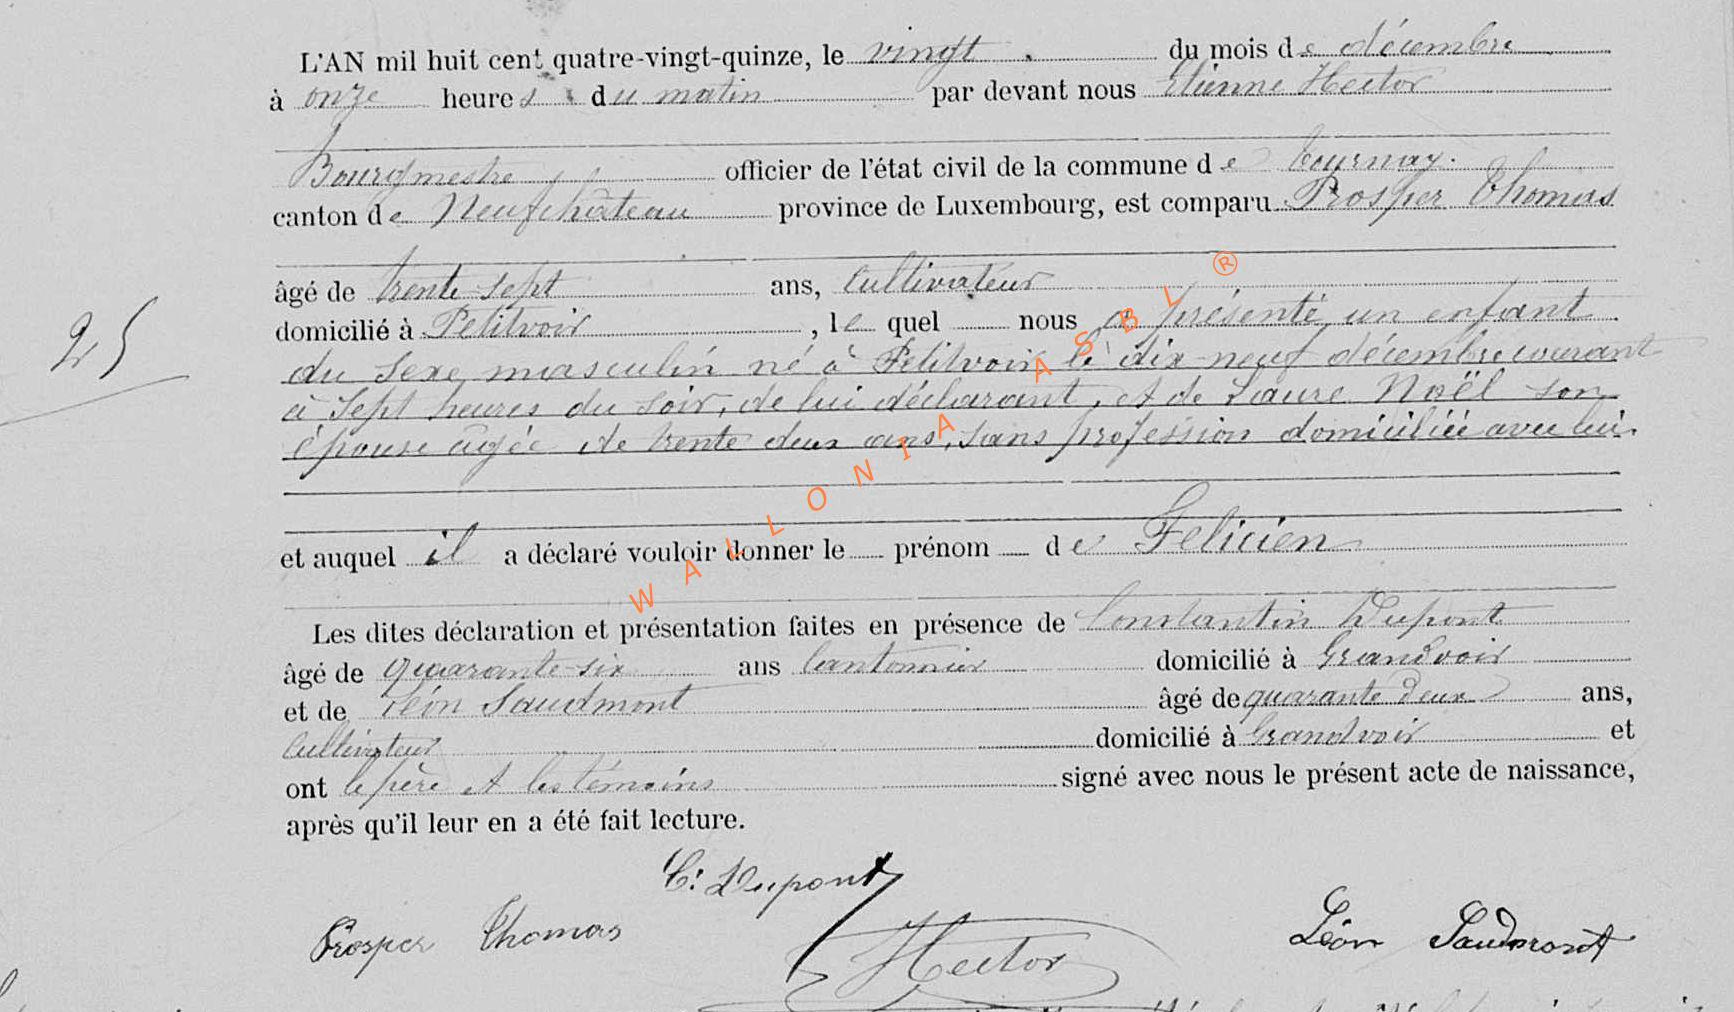 L'AN mil huit cent quatre-vingt-quinze, le vingt du mois de décembre
à onze heures du matin par devant nous Etienne Hector
Bourgmestre officier de l'état civil de la commune de Tournay.
canton de Neufchâteau province de Luxembourg, est comparu Prosper Thomas
âgé de trente-sept ans, Cultivateur
domicilié à Petitvoir, le quel nous a présenté un enfant
25
du sexe masculin né à Petitvoir le dix-neuf décembre courant
à sept heures du soir, de lui déclarant, et de Laure Noël son
épouse âgée de trente deux ans, sans profession domiciliée avec lui.
et auquel il a déclaré vouloir donner le prénom de Félicien
Les dites déclaration et présentation faites en présence de Constantin Dupont
âgé de quarante-six ans Cantonnier domicilié à Grandvoir
et de Léon Saudmont âgé de quarante deux ans,
Cultivateur domicilié à Grandvoir et
ont le père et les témoins signé avec nous le présent acte de naissance,
après qu'il leur en a été fait lecture.
C. Dupont
Prosper Thomas Hector Léon Saudmont
WALLONIA ASBL ®